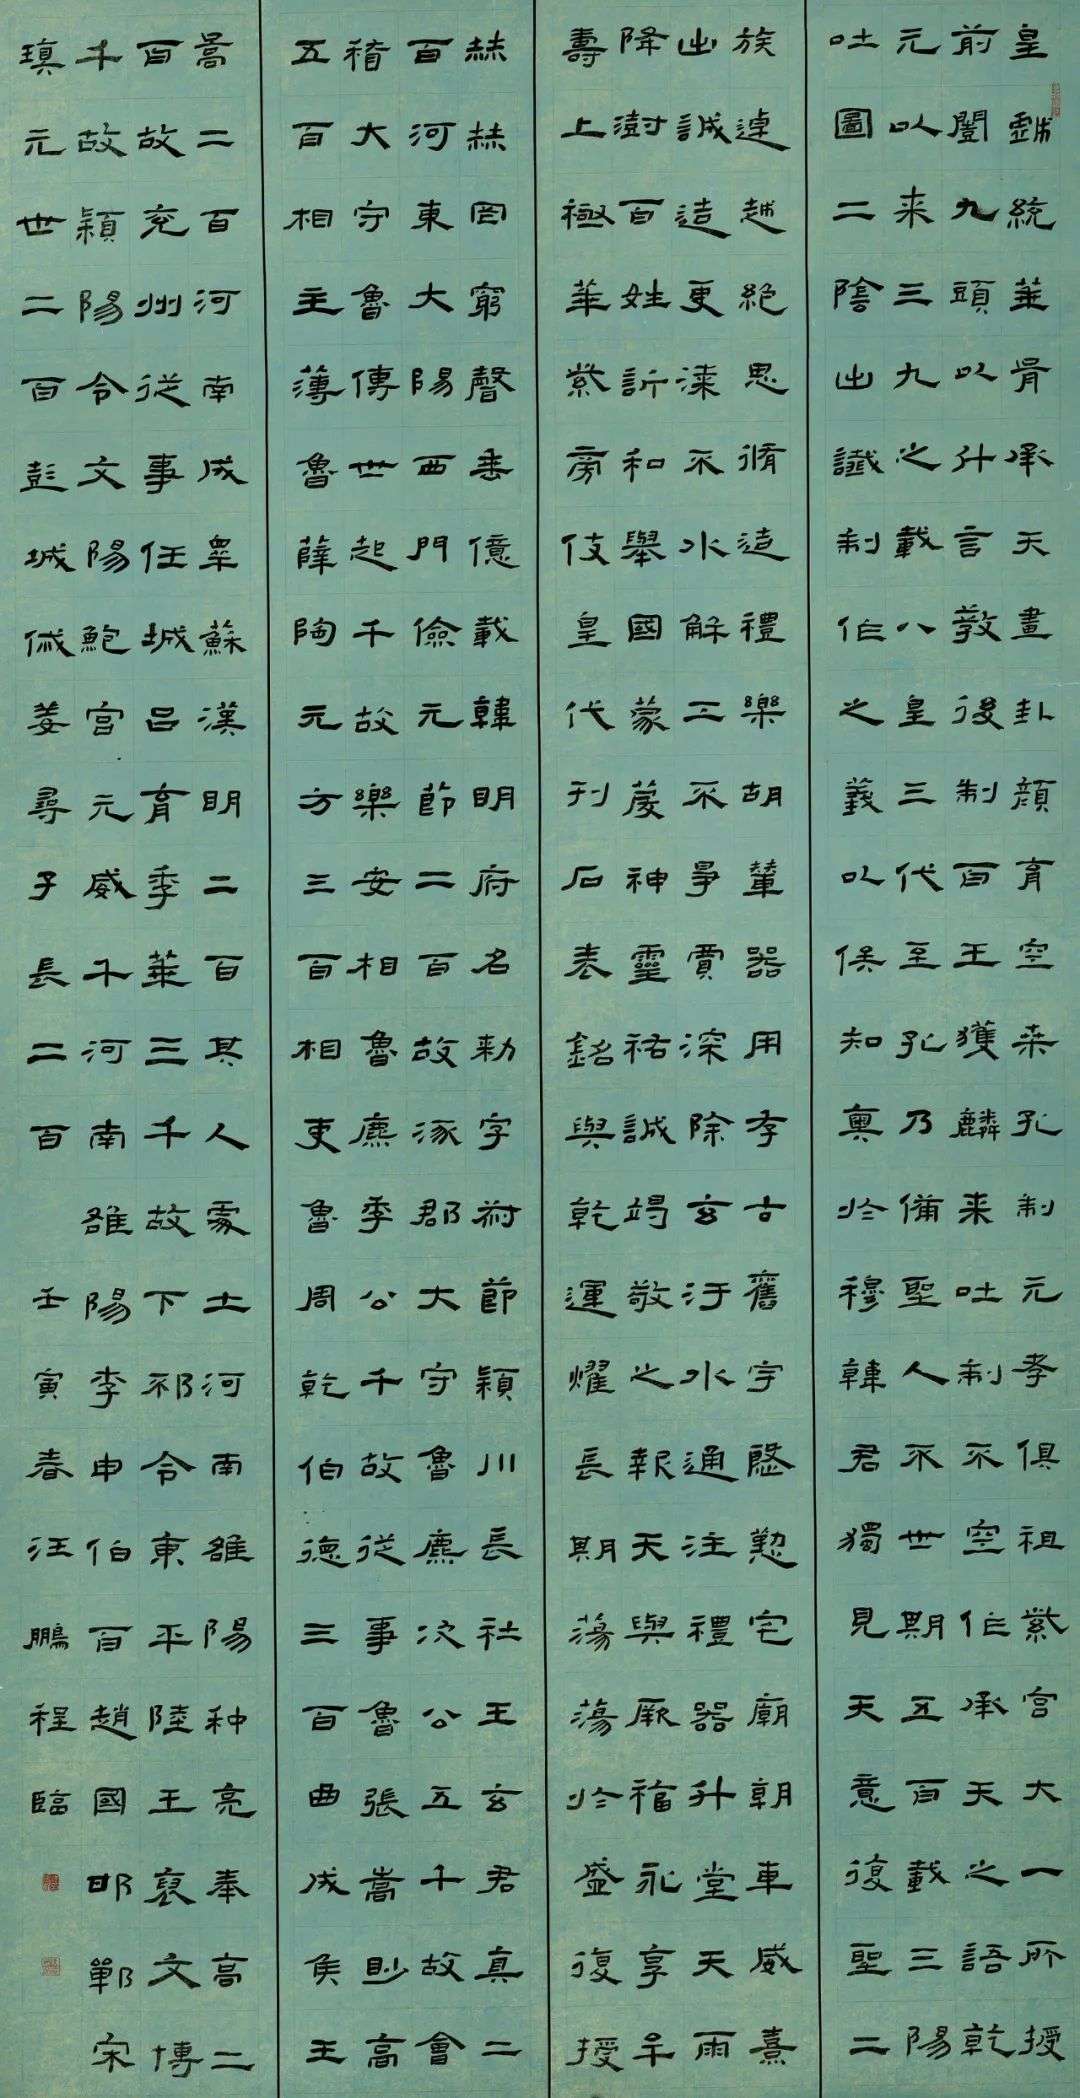 皇戲統華胥承天畫卦顏育空桑孔制元孝俱祖紫宮大一所授
前闓九頭以什言教後制百王獲麟来吐制不空作承天之語乾
元以来三九之載八皇三代至孔乃備聖人不世期五百載三陽
吐圖二陰出讖制作之義以俟知奧於穆韓君獨見天意復聖二
族逴越絕思脩造禮樂胡輦器用存古舊宇慇懃宅廟朝車威熹
出誠造更漆不水解工不爭賈深除玄汙水通注禮器升堂天雨
降澍百姓訢和舉國蒙慶神靈祐誠竭敬之報天與厥福永享牟
壽上極華紫旁伎皇代刊石表銘與乾運燿長期蕩蕩於盛復授
赫赫罔窮聲垂億載韓明府名勑字叔節潁川長社王玄君真二
百河東大陽西門儉元節二百故涿郡大守魯麃次公五千故會
稽大守魯傅世起千故樂安相魯麃季公千故從事魯張嵩眇高
五百相主薄魯薛陶元方三百相史魯周乾伯德三百曲成侯王
暠二百河南成睪蘇漢明二百其人處士河南雒陽种亮奉高二
百故兗州從事任城呂育季華三千故下邳令東平陸王褒文博
千故潁陽令文陽鮑宮元威千河南雒陽李申伯百趙國邯鄲宋
瑱元世二百彭城姜尋子長二百 壬寅春汪鵬程臨